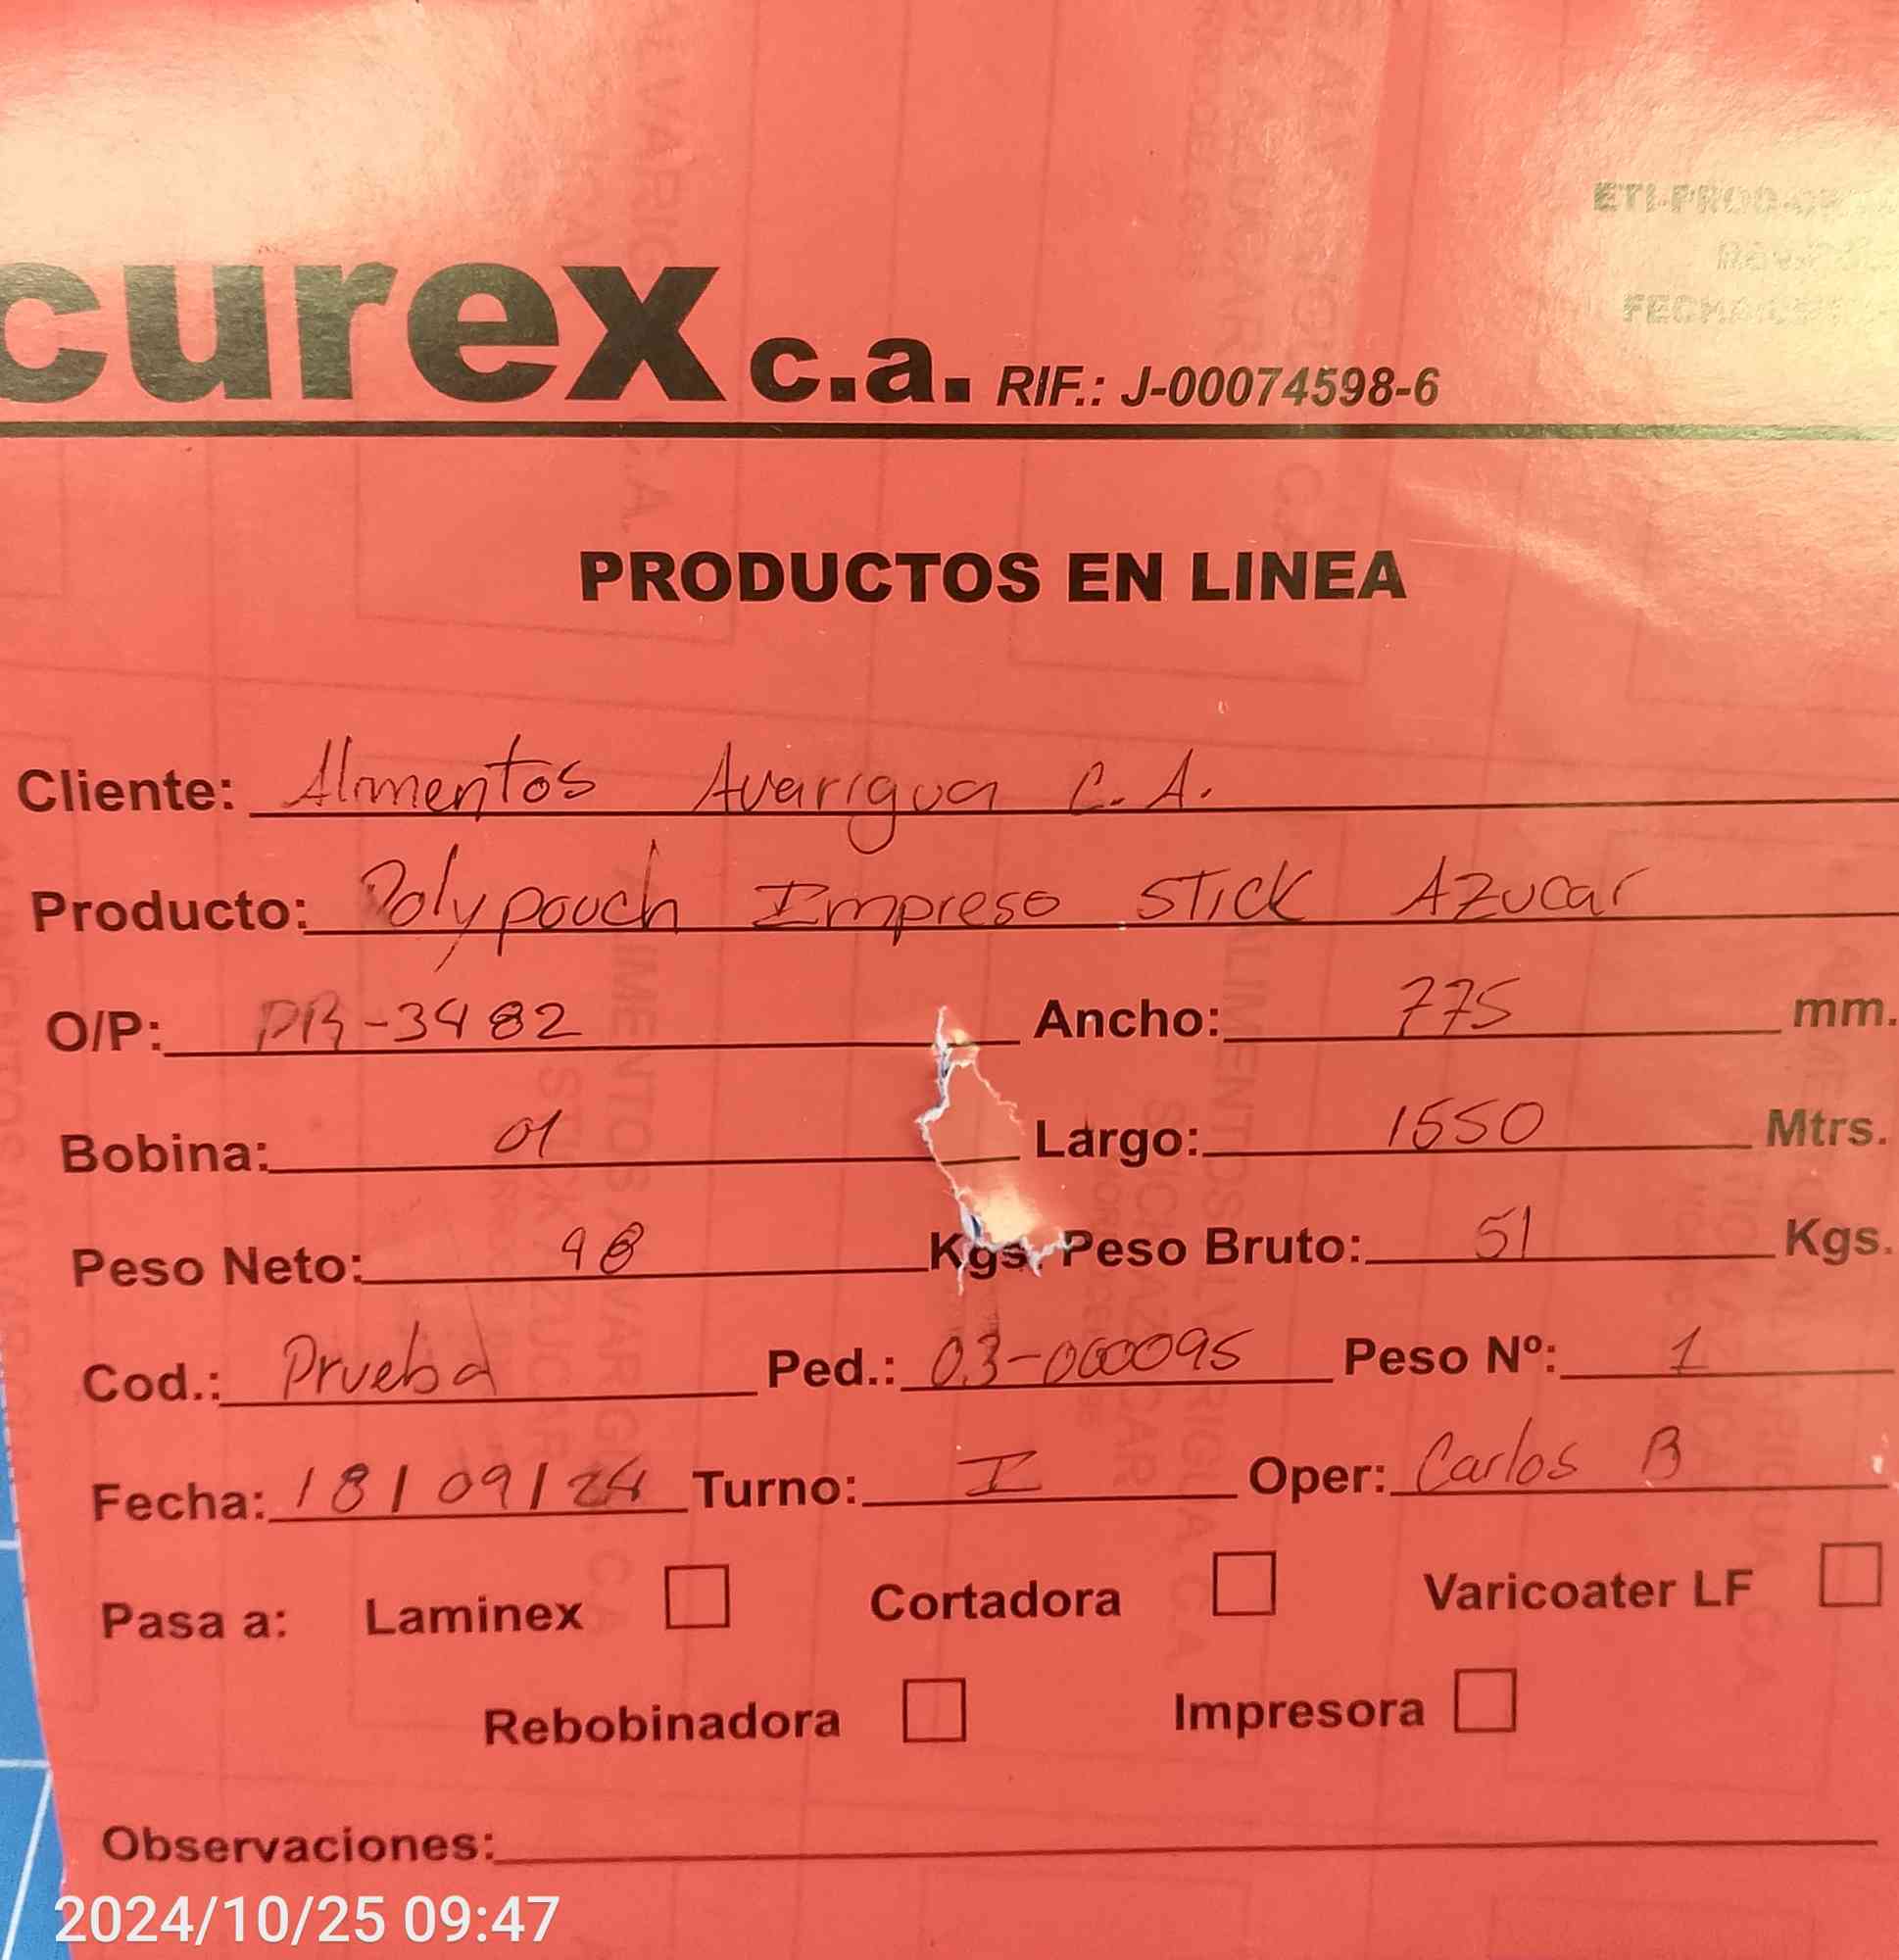 ETI-PROD-
FECHA:
curex c.a. RIF.: J-00074598-6
PRODUCTOS EN LINEA
Cliente: Alimentos Avarigua C.A.
Producto: Polypouch Impreso STICK AZUCar
O/P: PR-3482 Ancho: 775 mm.
Bobina: 01 Largo: 1550 Mtrs.
Peso Neto: 48 Kgs. Peso Bruto: 51 Kgs.
Cod.: Prueba Ped.: 03-000095 Peso Nº: 1
Fecha: 18/09/24 Turno: I Oper: Carlos B
Pasa a: Laminex Cortadora Varicoater LF
Rebobinadora Impresora
Observaciones:
2024/10/25 09:47